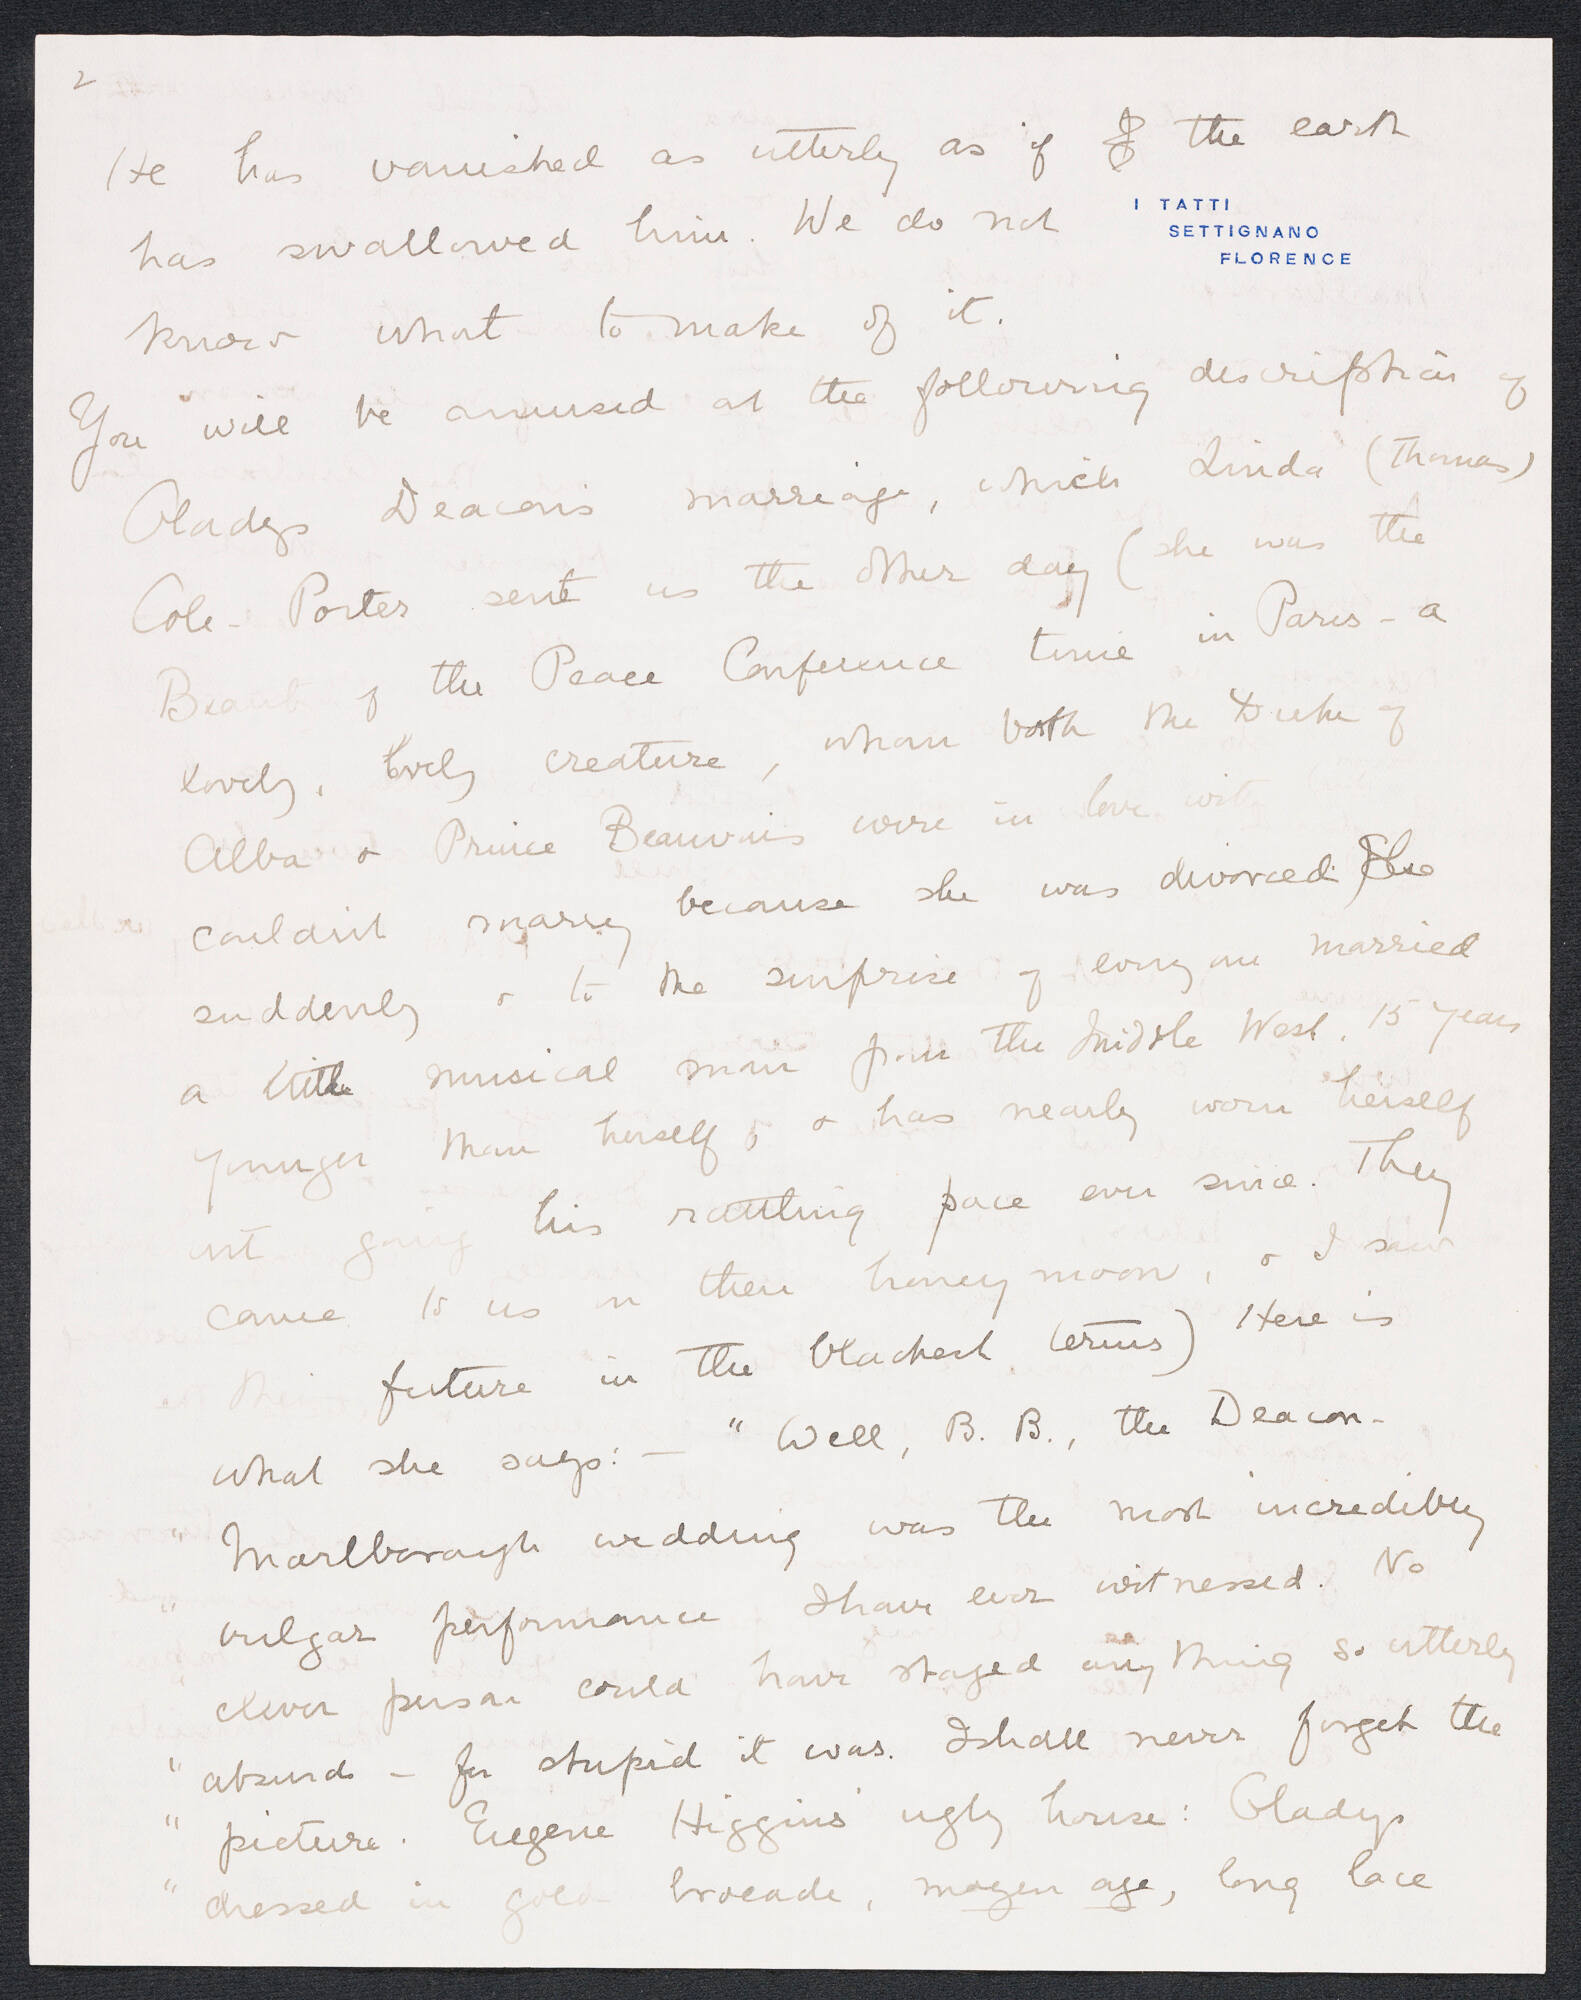 2
He has vanished as utterly as if the earth
I TATTI
SETTIGNANO
FLORENCE
has swallowed him. We do not
know what to make of it.
You will be amused at the following description of
Gladys Deacon's marriage, which Linda (Thomas)
Cole-Porter sent us the other day (she was the
Beauty of the Peace Conference time in Paris - a
lovely, lovely creature, whom both the Duke of
Alba & Prince Beauvais were in love with
couldn't marry because she was divorced. She
suddenly & to the surprise of everyone married
a little musical man from the Middle West, 15 years
younger than herself, & has nearly worn herself
out going his rattling pace ever since. They
came to us on their honeymoon, & I saw
their future in the blackest terms) Here is
what she says: — "Well, B. B., the Deacon-
" Marlborough wedding was the most incredibly
" vulgar performance I have ever witnessed. No
clever person could have staged anything so utterly
" absurd - for stupid it was. I shall never forget the
" picture. Eugene Higgins' ugly house: Gladys
" dressed in gold brocade, moyen age, long lace